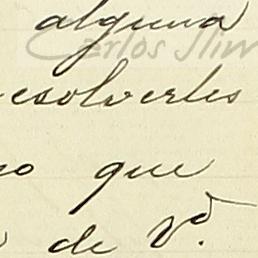 alguna
Carlos Slim
esolverles
que
de Vd.